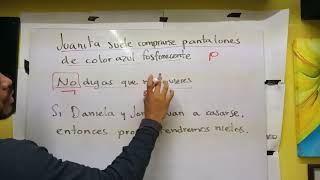 Juanita suele comprarse pantalones
de color azul fosforescente P
No digas que quieres
Si Daniela y Jor van a casarse,
entonces pro tendremos nietos.